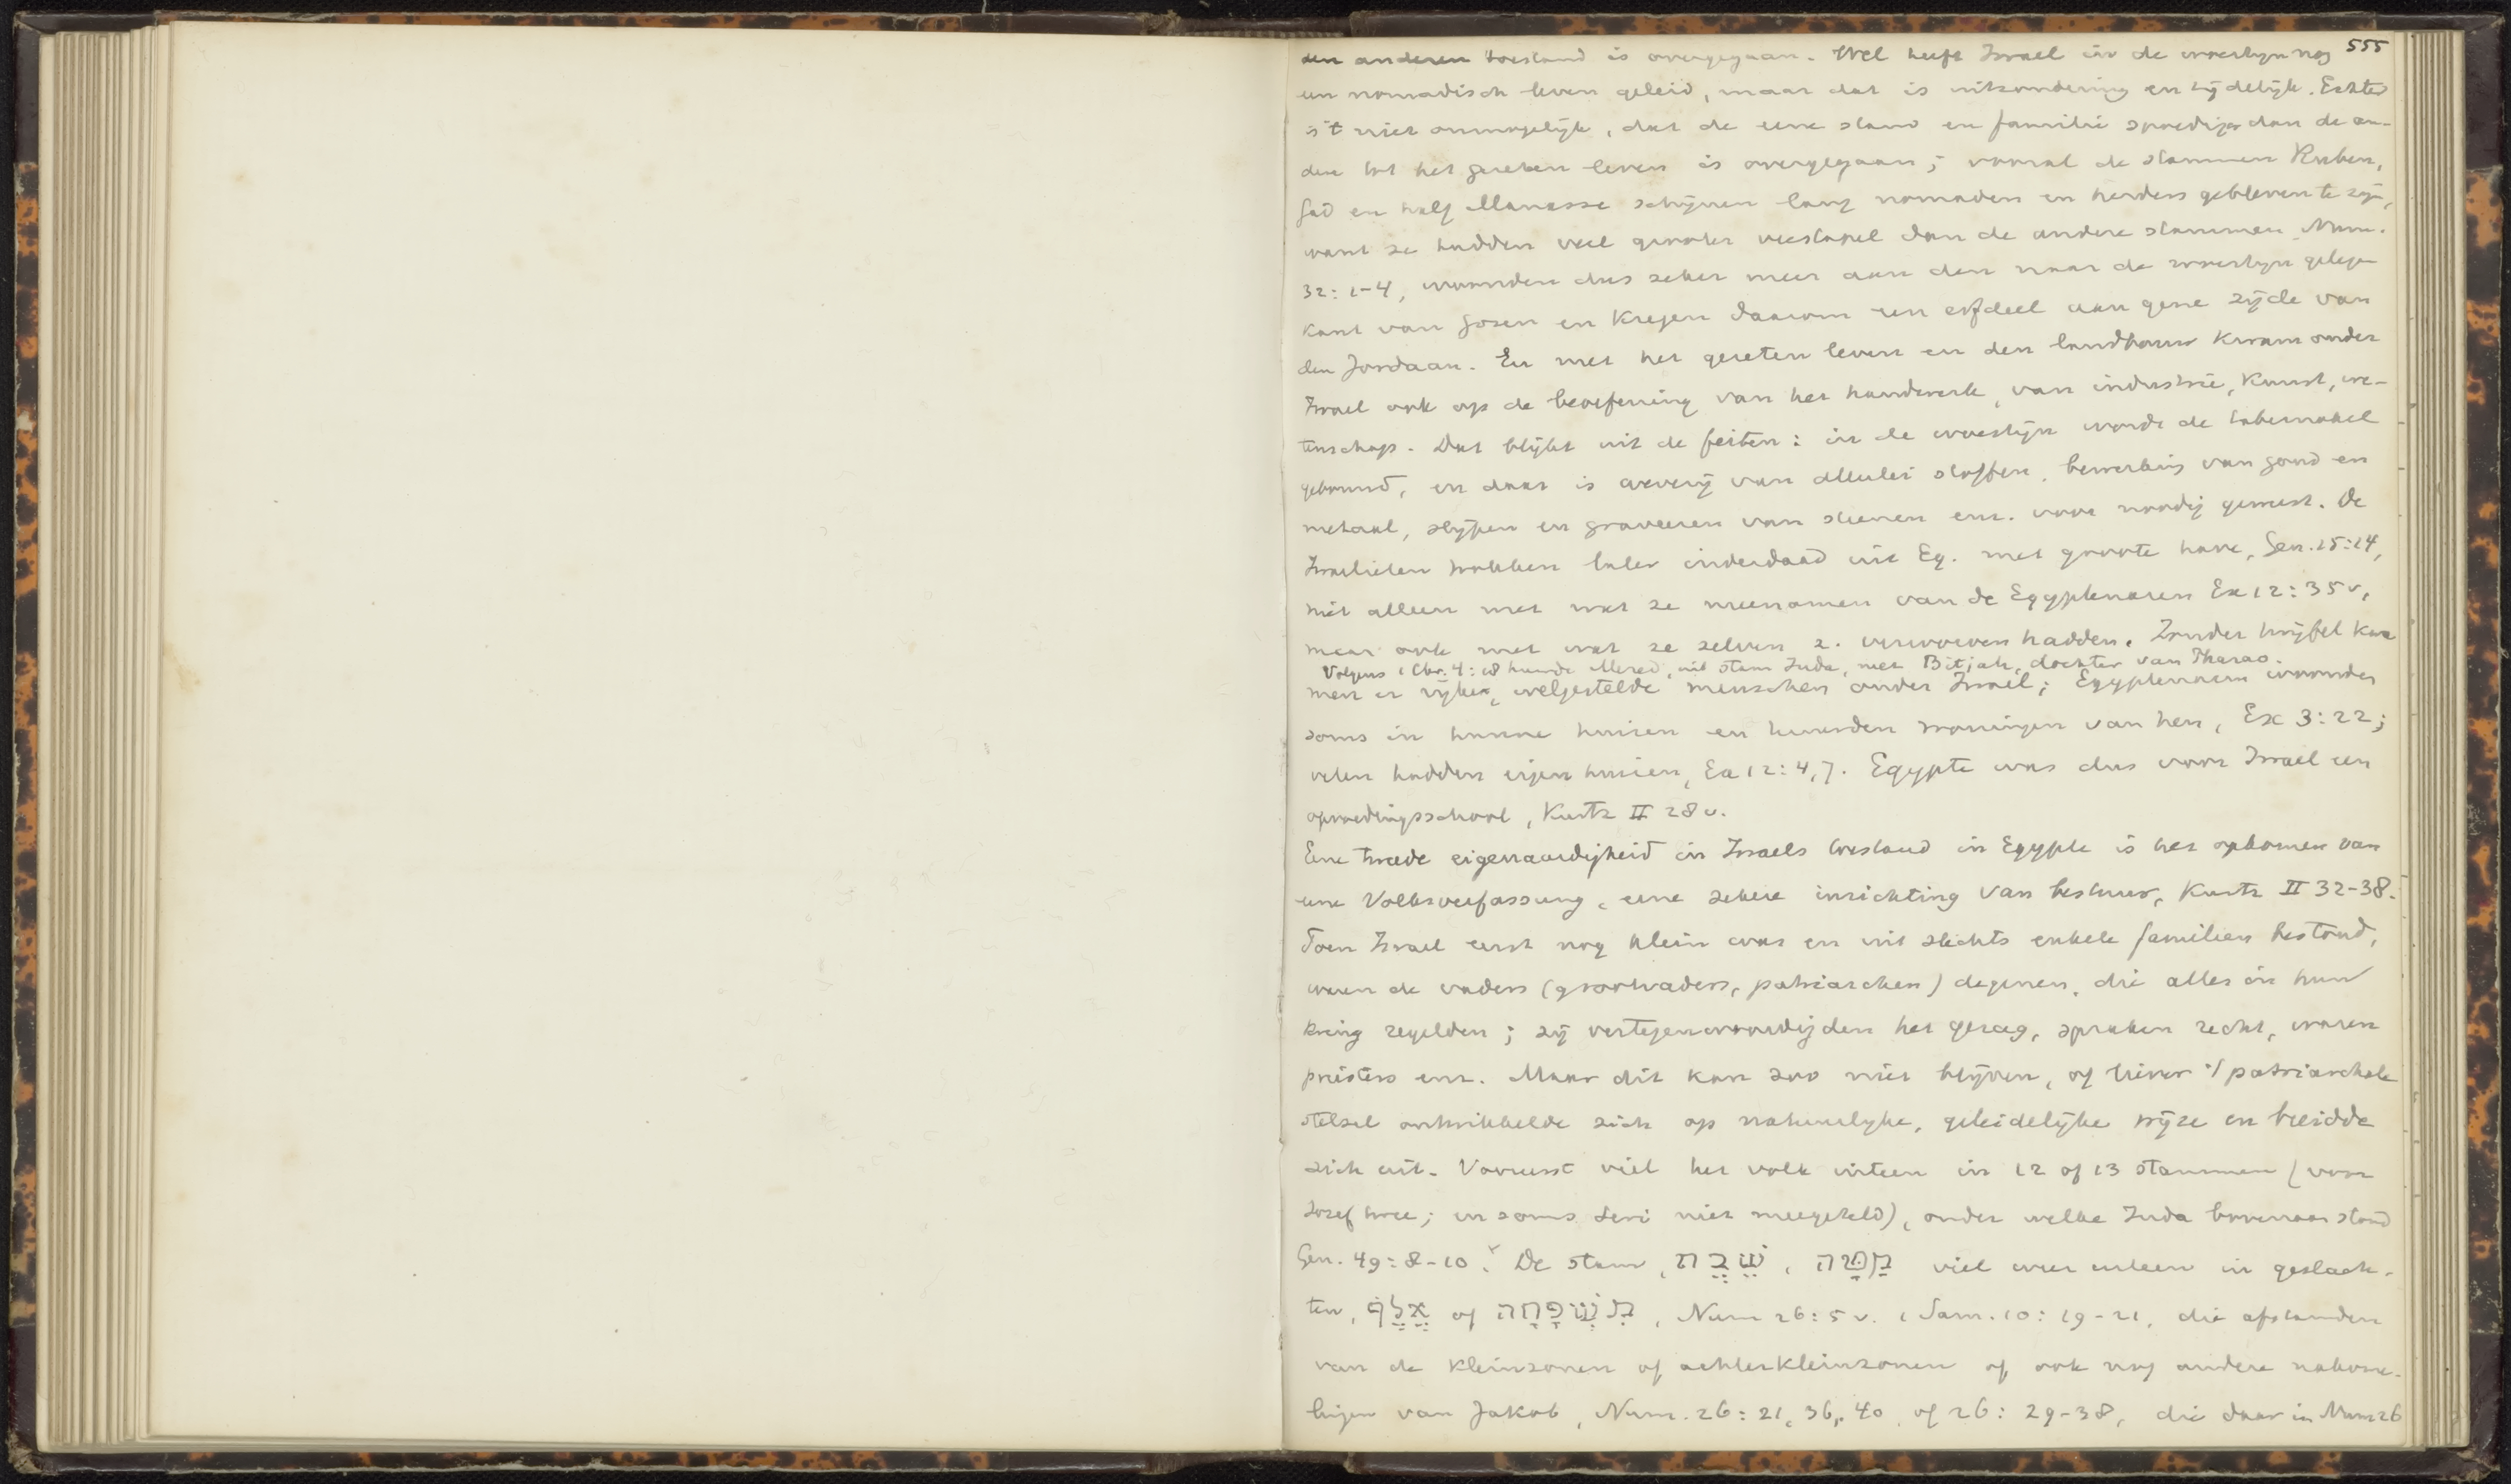 555
den anderen toestand is overgegaan. Wel heeft Israel in de woestijn nog
een nomadisch leven geleid, maar dat is uitzondering en tijdelijk. Echter
is 't niet onmogelijk, dat de eene stam en familie spoediger dan de an-
dere tot het gezeten leven is overgegaan; vooral de stammen Ruben,
Gad en half Manasse schijnen lang nomaden en herders gebleven te zijn,
want ze hadden veel grooter veestapel dan de andere stammen Num.
32:1-4, woonden dus zeker meer aan den naar de woestijn gelegen
kant van Gosen en kregen daarom een erfdeel aan gene zijde van
den Jordaan. En met het gezeten leven en den landbouw kwam onder
Israel ook op de beoefening van het handwerk, van industrie, kunst, we-
tenschap. Dat blijkt uit de feiten: in de woestijn wordt de tabernakel
gebouwd, en daar is weverij van allerlei stoffen, bewerking van goud en
metaal, slijpen en graveeren van steenen enz. voor noodig geweest. De
Israelieten trokken later inderdaad uit Eg. met groote have, Gen. 15:14,
niet alleen met wat ze meenamen van de Egyptenaren Ex 12:35 v,
maar ook met wat ze zelven z. verworven hadden. Zonder twijfel kwa
Volgens 1 Chr. 4:18 huwde Mered, uit stam Juda, met Bitjah, dochter van Pharao.
men er rijke, welgestelde menschen onder Israel; Egyptenaren woonden
soms in hunne huizen en huurden woningen van hen, Ex 3:22;
velen hadden eigen huizen, Ex 12:4,7. Egypte was dus voor Israel een
opvoedingsschool, Kurtz II 28 v.
Eene tweede eigenaardigheid in Israels toestand in Egypte is het opkomen van
eene Volksverfassung, eene zekere inrichting van bestuur, Kurtz II 32-38.
Toen Israel eerst nog klein was en uit slechts enkele familien bestond,
waren de vaders (grootvaders, patriarchen) degenen, die alles in hun
kring regelden; zij vertegenwoordigden het gezag, spraken recht, waren
priesters enz. Maar dit kan zoo niet blijven, of liever 't patriarchale
stelsel ontwikkelde zich op natuurlijke, geleidelijke wijze en breidde
zich uit. Vooreerst viel het volk uiteen in 12 of 13 stammen (voor
Jozef twee; en soms Levi niet meegeteld), onder welke Juda bovenaan stond
Gen. 49:8-10. De stam, שבה, מטה viel weer uiteen in geslach-
ten, אלף of משפחה, Num 26:5 v. 1 Sam. 10:19-21, die afstamden
van de kleinzonen of achterkleinzonen of ook nog andere nakome-
lingen van Jakob, Num. 26:21, 36, 40, of 26:29-38, die daar in Num 26